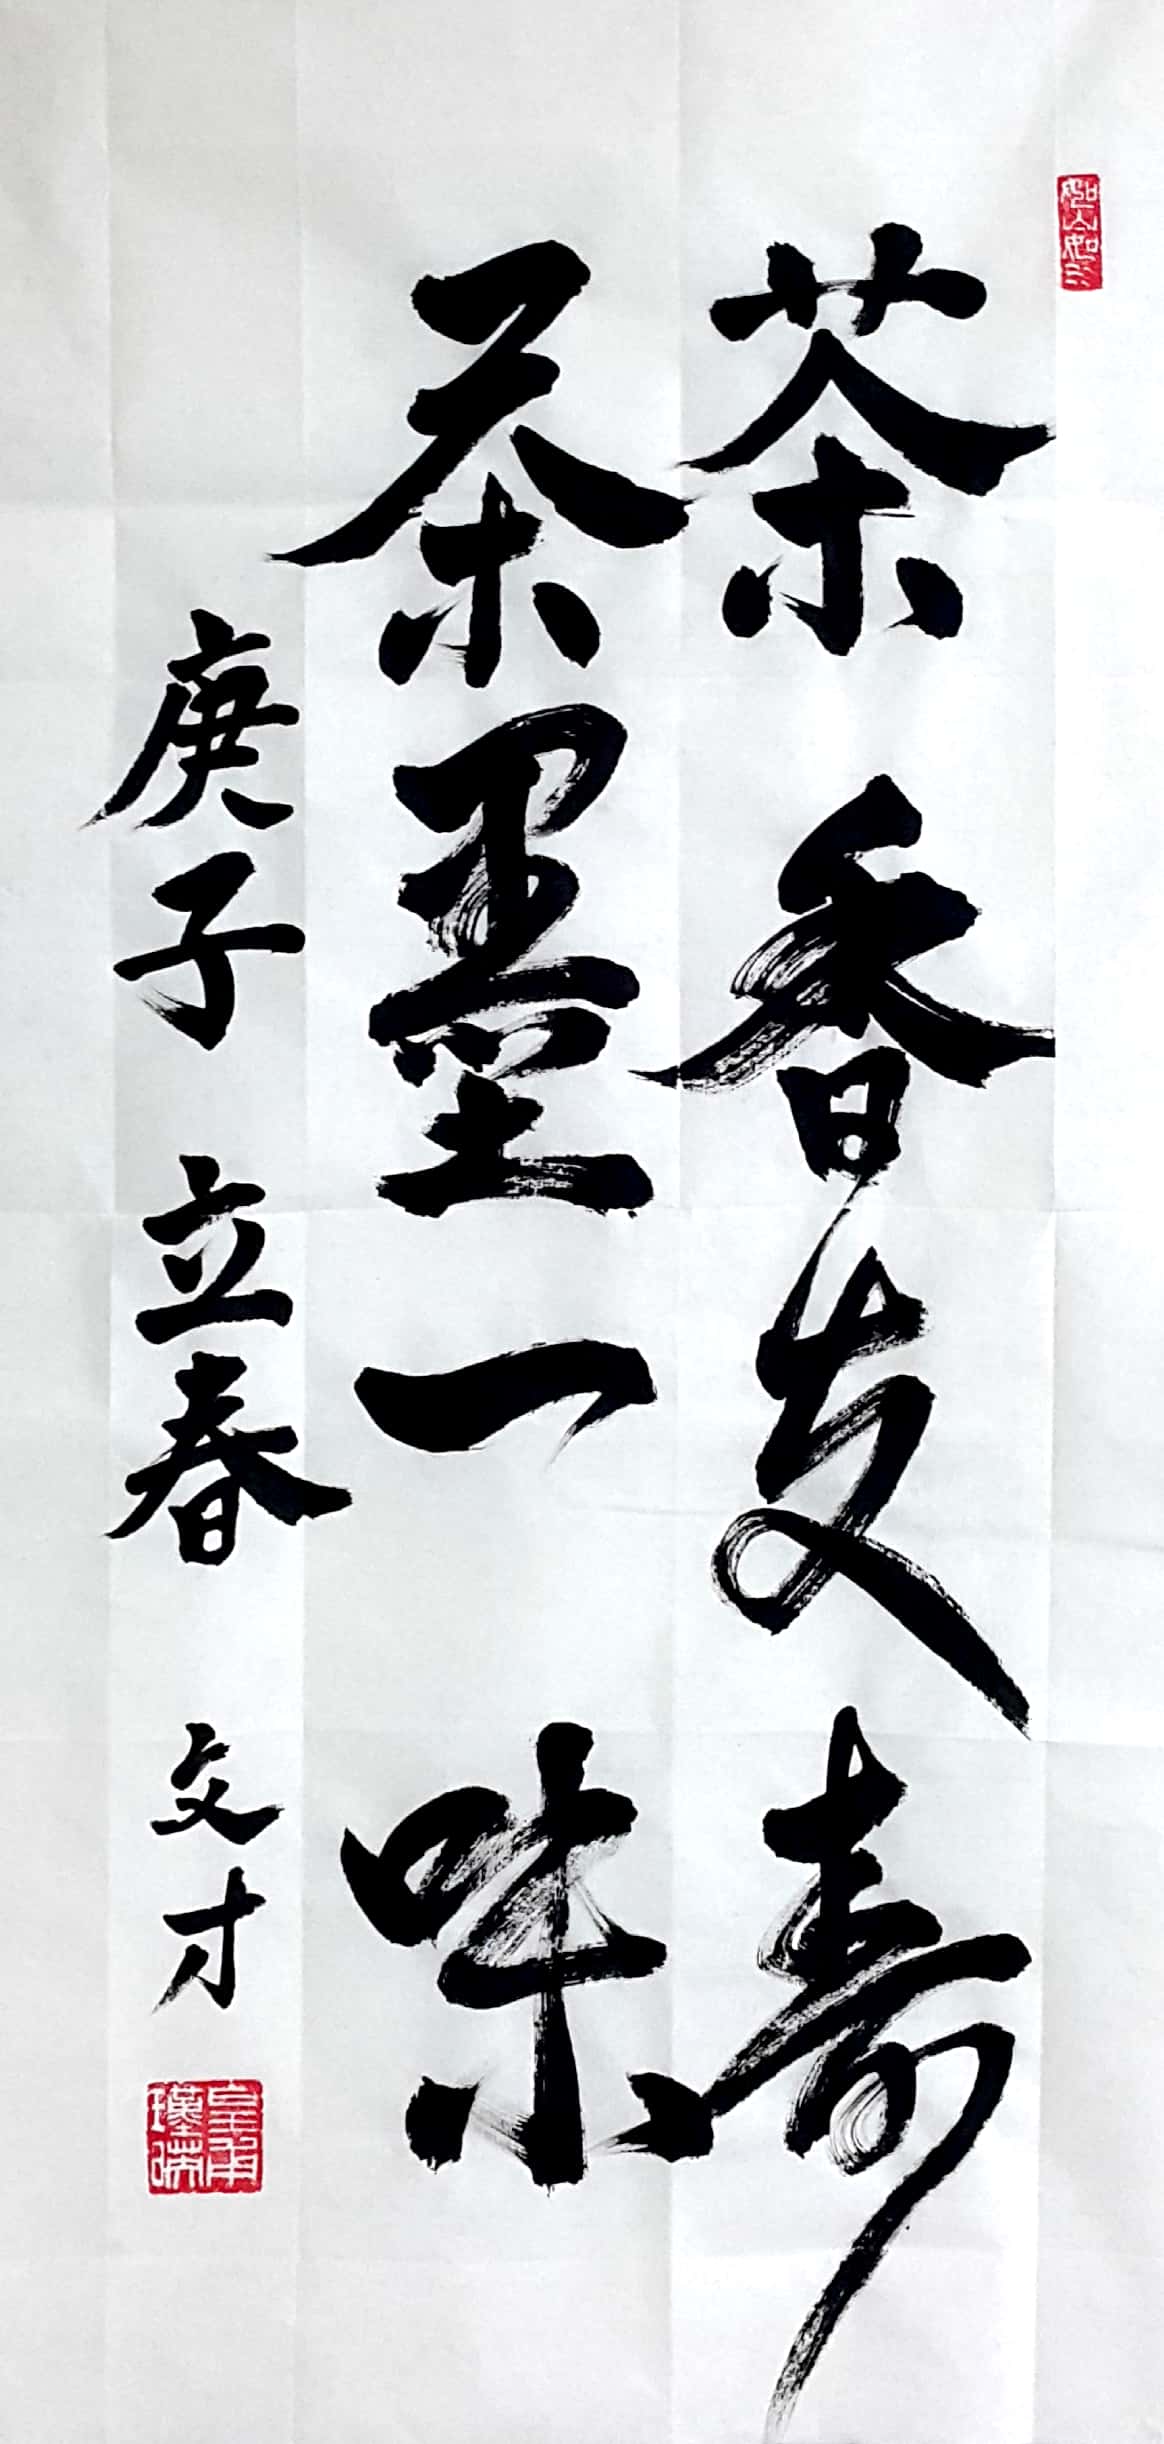 茶香友寿
茶墨一味
庚子 立春 文才